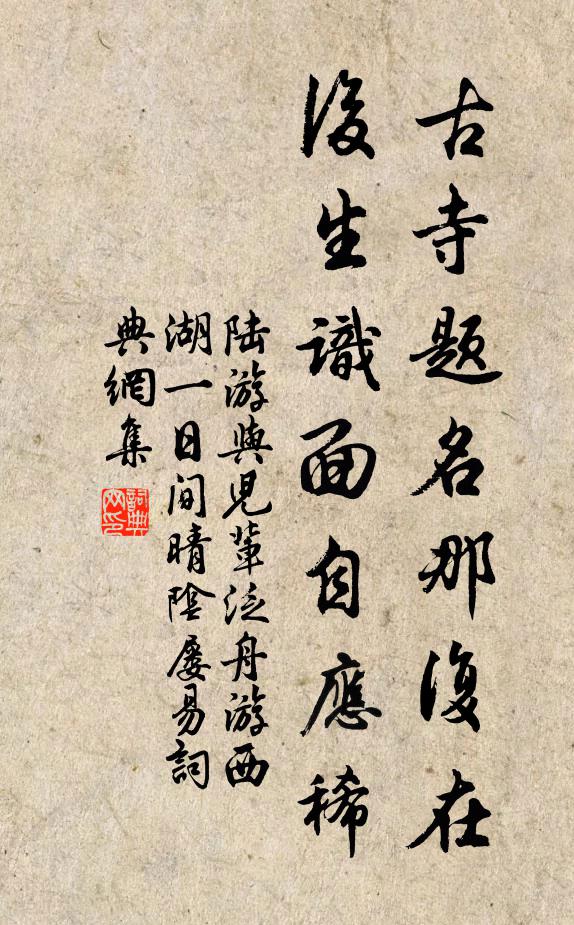 古寺題名那復在
後生識面自應稀
陆游與兒輩泛舟游西
湖一日间晴陰屡易詞
典網集
詞典
网印